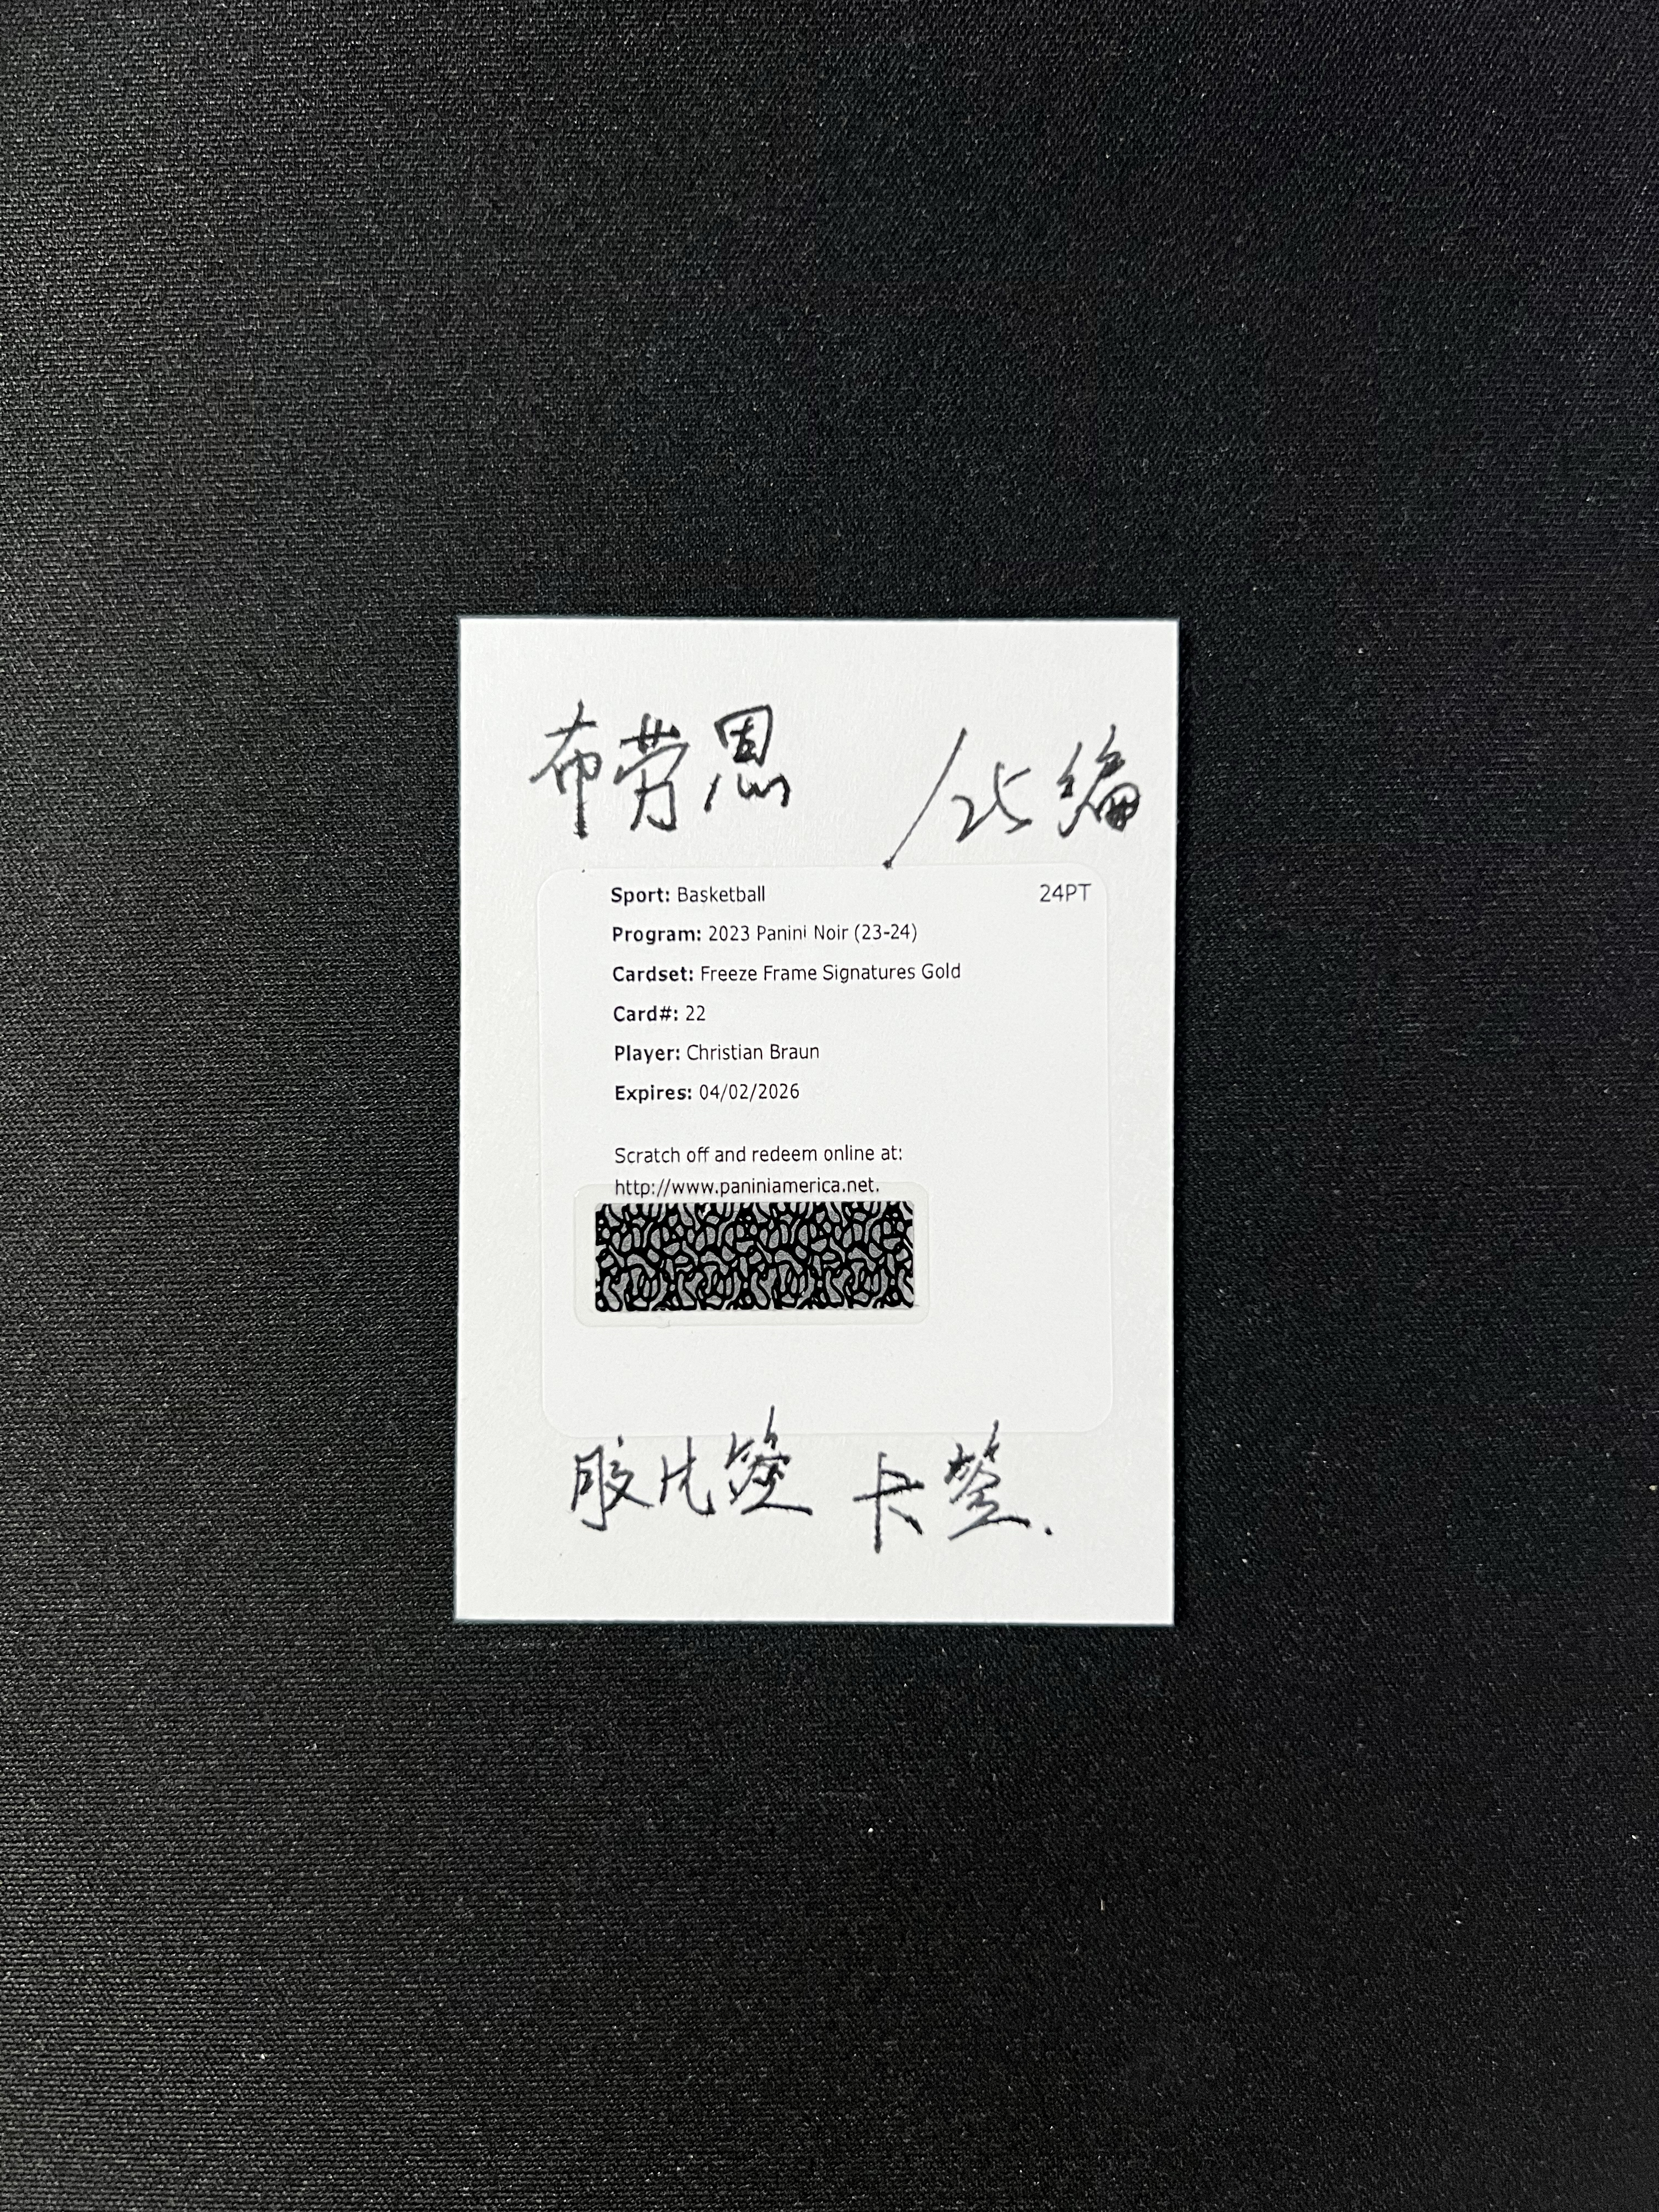 布劳恩 /25编
Sport: Basketball 24PT
Program: 2023 Panini Noir (23-24)
Cardset: Freeze Frame Signatures Gold
Card#: 22
Player: Christian Braun
Expires: 04/02/2026
Scratch off and redeem online at:
http://www.paniniamerica.net.
胶片签 卡签.